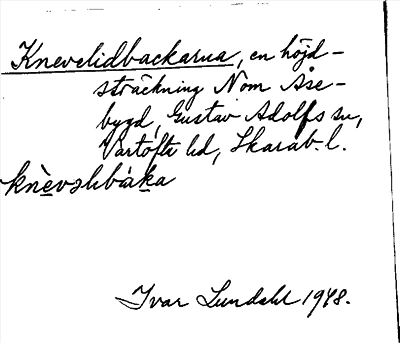 Knevelidbackarna, en höjd-
sträckning Nom Åse-
bygd, Gustav Adolfs sn,
Vartofta hd, Skarab. l.
knèvslibàka
Ivar Lundahl 1948.